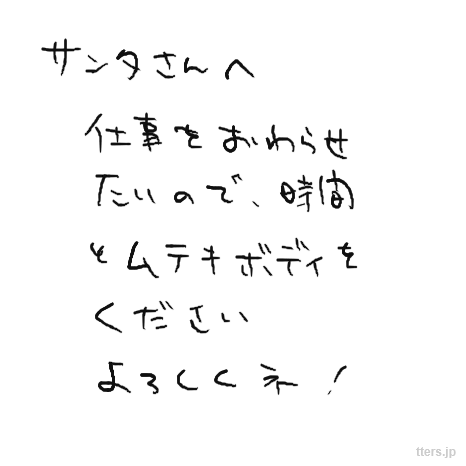 サンタさんへ
仕事をおわらせ
たいので、時間
とムテキボディを
ください
よろしくネ!
tters.jp